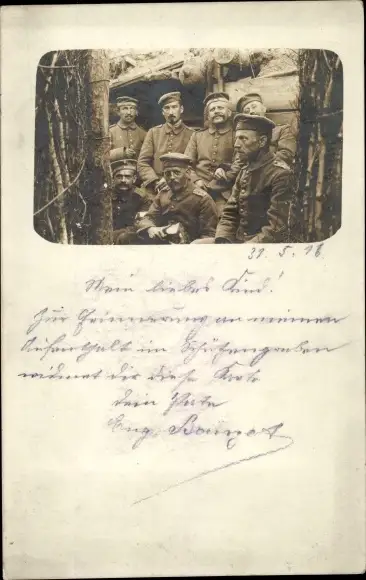 31. 5. 16
Mein liebes Kind!
Zur Erinnerung an meinen
Aufenthalt im Schützengraben
widmet dir diese Karte
dein Pate
Eug.